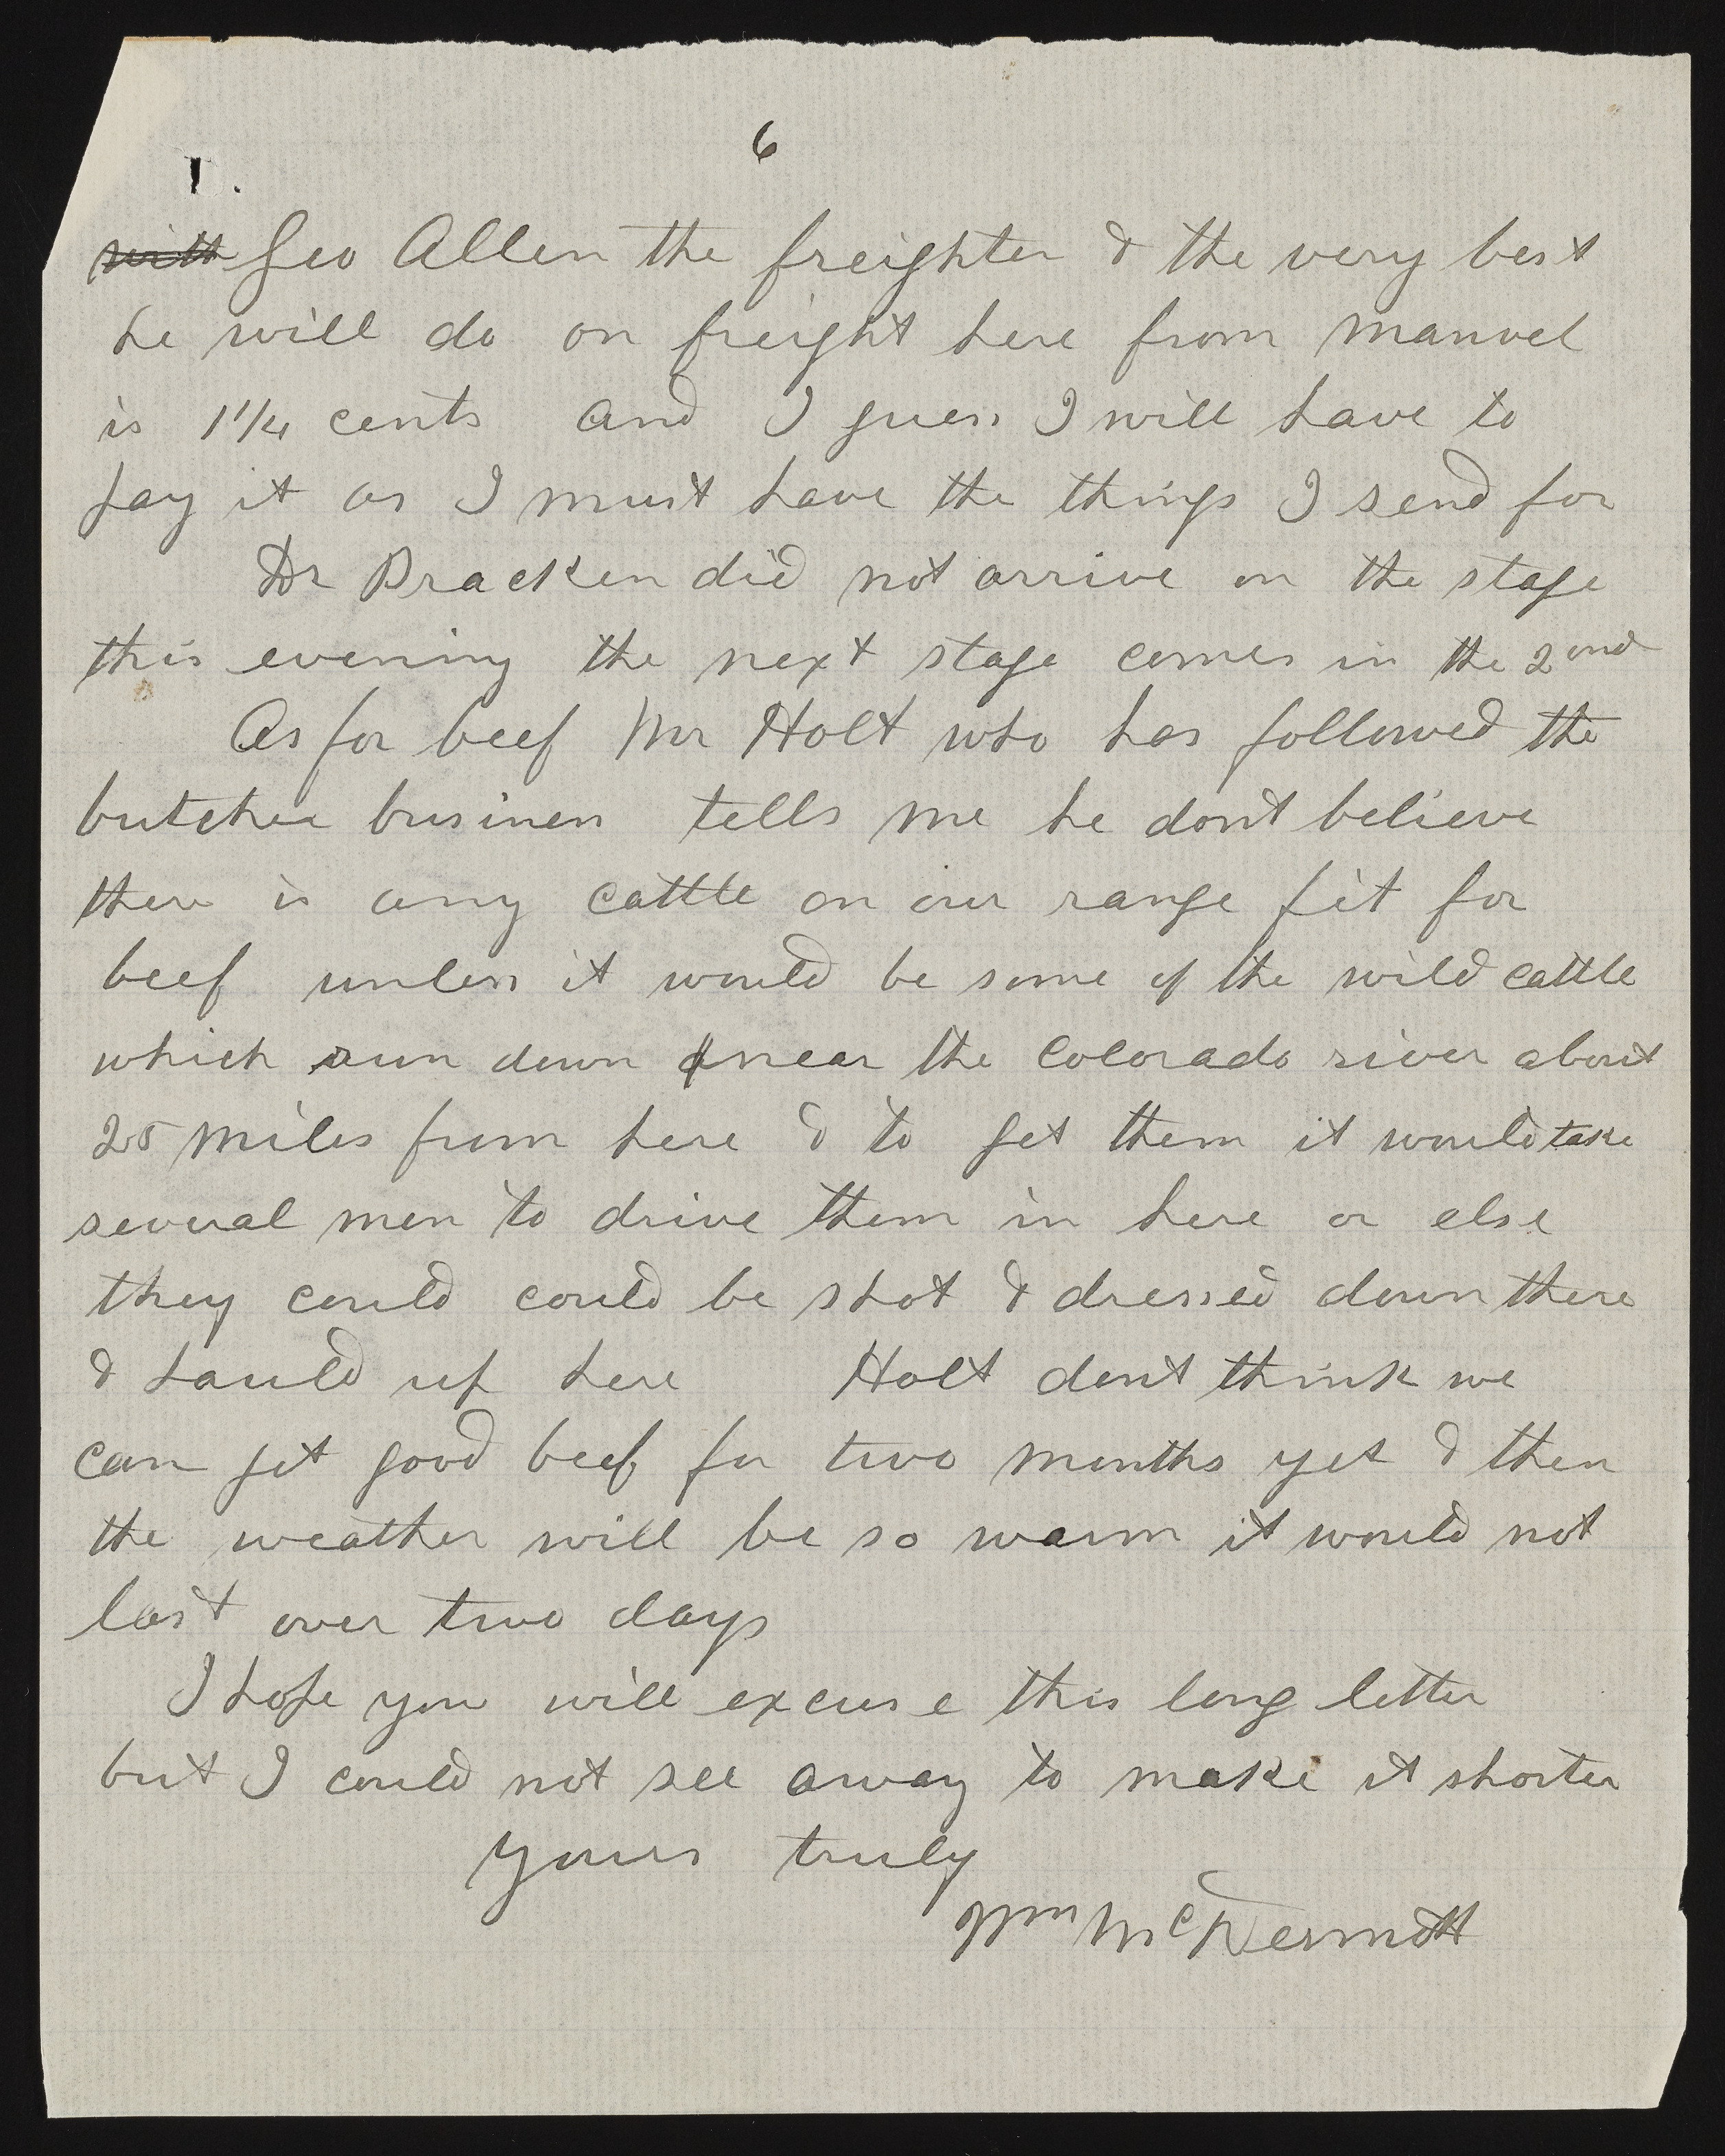 6
with Geo Allen the freighter & the very best
he will do on freight here from Manvel
is 1 1/4 cents and I guess I will have to
pay it as I must have the things I send for
Dr Bracken did not arrive on the stage
this evening the next stage comes in the 2ond
As for beef Mr Holt who has followed the
butcher business tells me he dont believe
there is any cattle on our range fit for
beef unless it would be some of the wild cattle
which run down near the Colorado river about
25 miles from here & to get them it would take
several men to drive them in here or else
they could could be shot & dressed down there
& hauld up here Holt dont think we
can get good beef for two months yet & then
the weather will be so warm it would not
last over two days
I hope you will excuse this long letter
but I could not see away to make it shorter
Yours truly
Wm McDermott